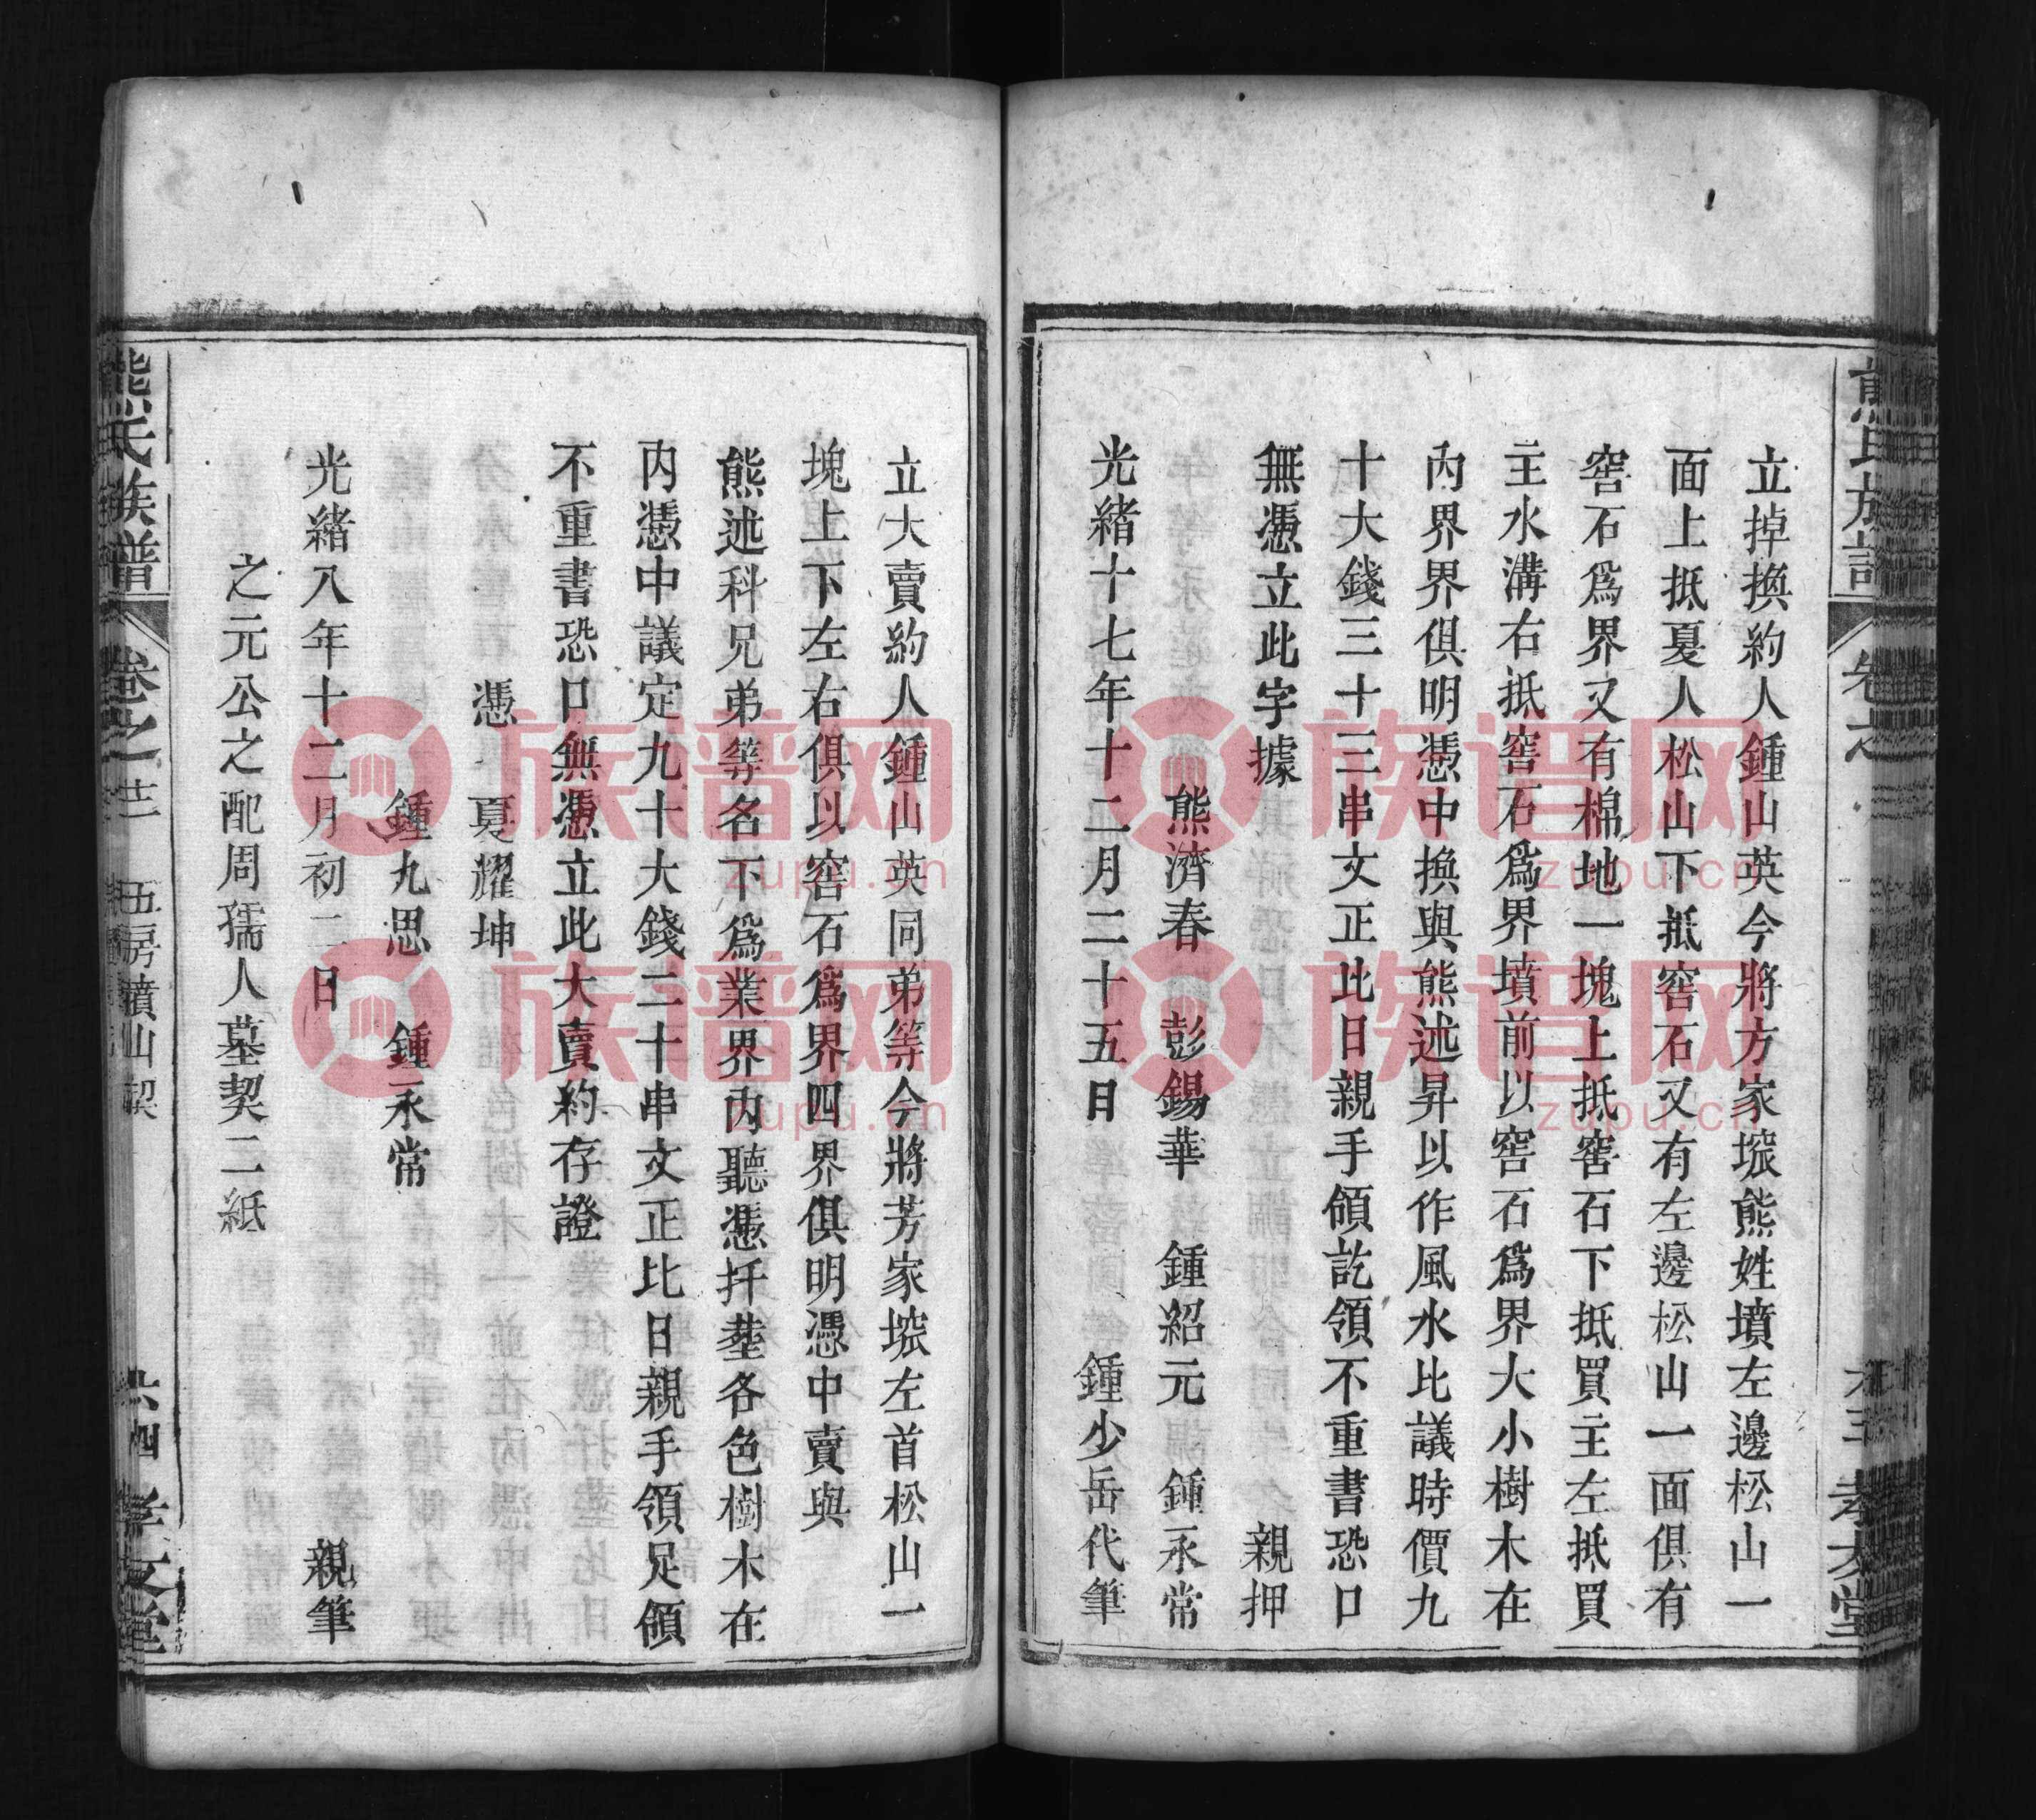 立掉換約人鍾山英今將方家塝熊姓墳左邊松山一
面上抵夏人松山下抵窖石又有左邊松山一面俱有
窖石爲界又有棉地一塊上抵窖石下抵買主左抵買
主水溝右抵窖石爲界墳前以窖石爲界大小樹木在
內界界俱明憑中換與熊述昇以作風水比議時價九
十大錢三十三串文正比日親手領訖領不重書恐口
無憑立此字據　親押
熊濟春　彭錫華　鍾紹元　鍾永常
光緒十七年十二月二十五日　鍾少岳代筆
立大賣約人鍾山英同弟等今將芳家塝左首松山一
塊上下左右俱以窖石爲界四界俱明憑中賣與
熊述科兄弟等名下爲業界內聽憑扦塟各色樹木在
內憑中議定九十大錢二十串文正比日親手領足領
不重書恐口無憑立此大賣約存證
憑　夏耀坤
鍾九思　鍾永常
光緒八年十二月初二日　親筆
之元公之配周孺人墓契二紙
熊氏族譜　卷之廿二　五房墳山契　六四　孝友堂
族谱网
zupu.cn
族谱网
zupu.cn
族谱网
zupu.cn
族谱网
zupu.cn